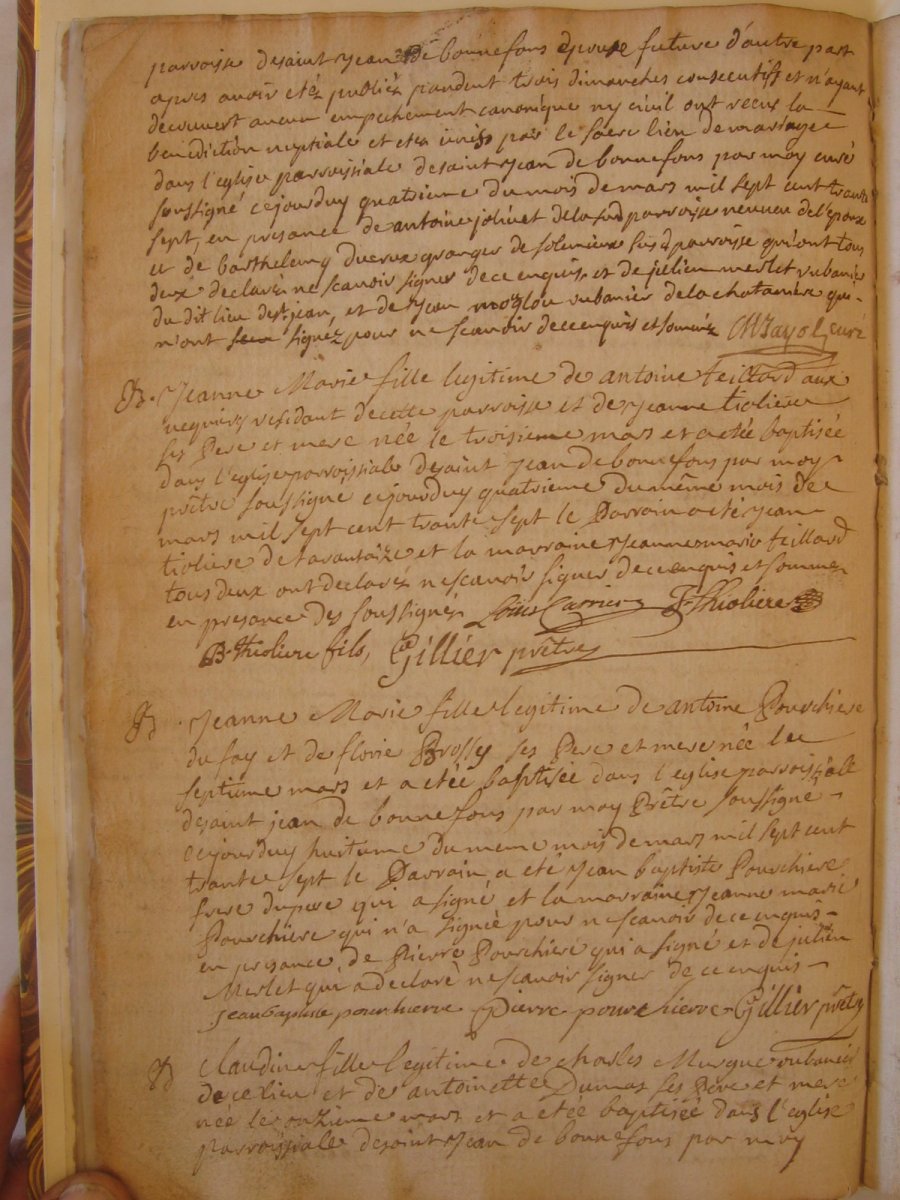 parroisse desaint Jean de bonnefons epouse future d'autre part
apres avoir etéz publiéz pandent trois dimanches consecutifs et n'ayant
decouvert aucun empechement canonique ny civil ont receu la
benediction nuptiale et etes unéss par le sacre lien de mariage
dans l'eglise parroissiale desaint Jean de bonnefons par moy curé
soussigné cejourduy quatrieme du mois de mars mil sept cent trante
sept, en presance de antoine jolivet delasusd parroisse neuveu de l'epoux
et de barthelemy ducreux granger de solemieux susd parroisse qu'ont tous
deux declaréz ne scavoir signer dece enquis, et de julien merlet rubanier
du dit lieu de st jean, et de Jean rubanier de la chataniere qui
n'ont signéz pour ne scavoir dece enquis et soméz Mayol curé
B. Jeanne Marie fille legitime de antoine teillard aux
residant decette parroisse et de Jeanne tioliere
ses Pere et mere née le troisieme mars et a etée baptisée
dans l'eglise parroissiale desaint Jean de bonnefons par moy
prêtre soussigné cejourduy quatrieme du même mois de
mars mil sept cent trante sept le Parrain a été Jean
tioliere de tarantaize et la marraine Jeanne marie teillard
tous deux ont declaréz ne scavoir signer dece enquis et sommez
en presance des soussignéz Louis Carrier J Thioliere
B. thioliere fils, Gillier prêtre
B Jeanne Marie fille legitime de antoine Pourchiere
du fay et de florie Brossy ses Pere et mere née le
septieme mars et a etée baptisée dans l'eglise parroissiale
desaint jean de bonnefons par moy Prêtre soussigné
cejourduy huitieme du meme mois de mars mil sept cent
trante sept le Parrain a eté Jean baptiste Pourchiere
frere dupere qui a signé et la marraine Jeanne marie
Pourchiere qui n'a signée pour ne scavoir dece enquis
en presance de Pierre Pourchiere qui a signé et de julien
Merlet qui a declaré ne scavoir signer de ce enquis
jean baptiste pourchierre Pierre pourchierre Gillier prêtre
B Claudine fille legitime de charles Murgue rubanier
de ce lieu et de antoinette Dumas ses Pere et mere
née le onzieme mars et a etée baptisée dans l'eglise
parroissiale desaint Jean de bonnefons par moy